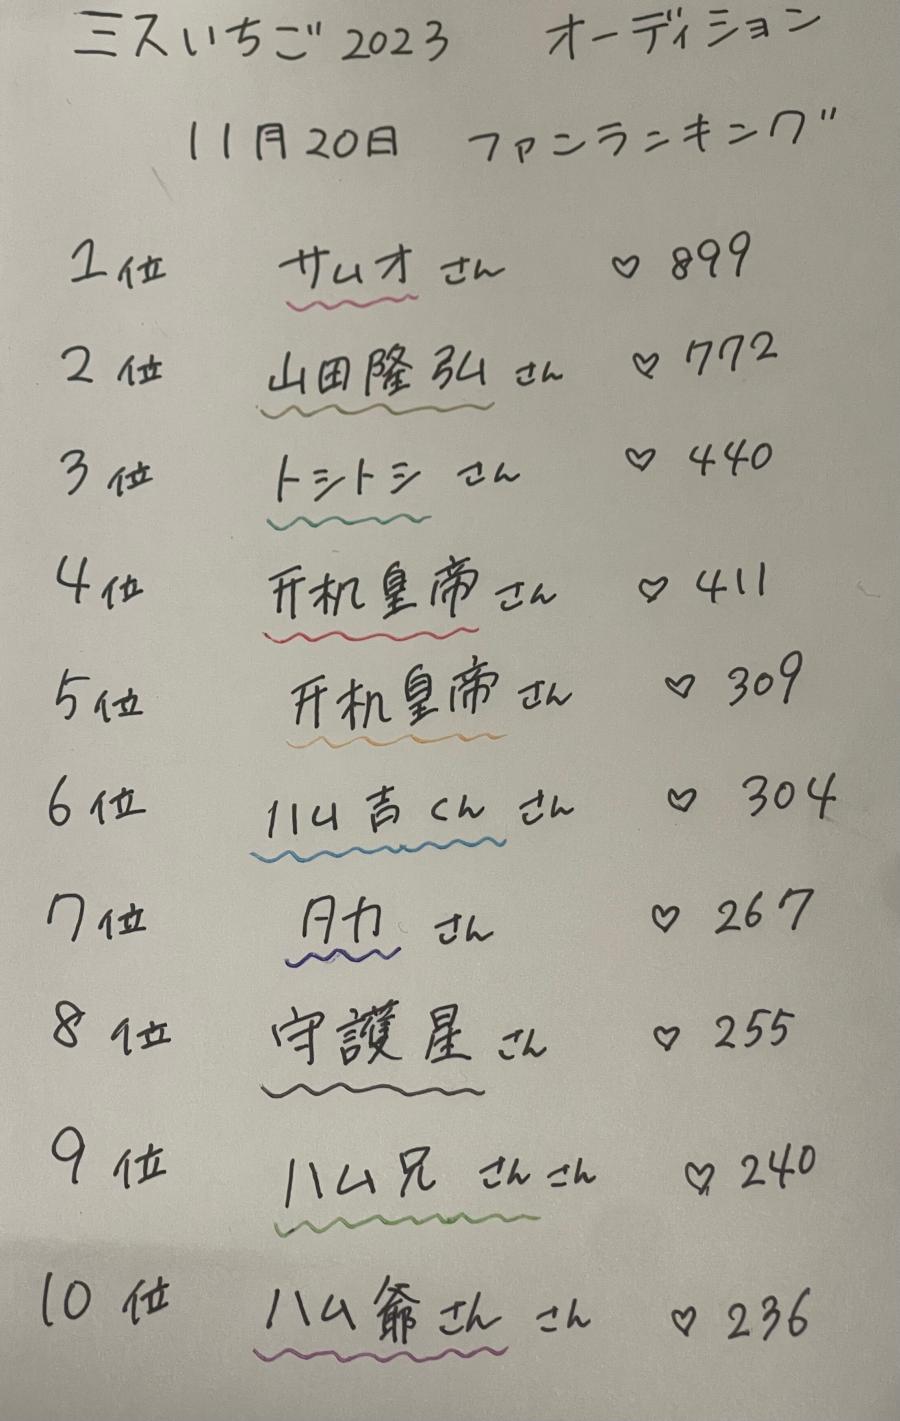 ミスいちご2023 オーディション
11月20日 ファンランキング
1位 サムオ さん ♡ 899
2位 山田隆弘 さん ♡ 772
3位 トシトシ さん ♡ 440
4位 开机皇帝 さん ♡ 411
5位 开机皇帝 さん ♡ 309
6位 ハム吉くん さん ♡ 304
7位 タカ さん ♡ 267
8位 守護星 さん ♡ 255
9位 ハム兄さん さん ♡ 240
10位 ハム爺さん さん ♡ 236